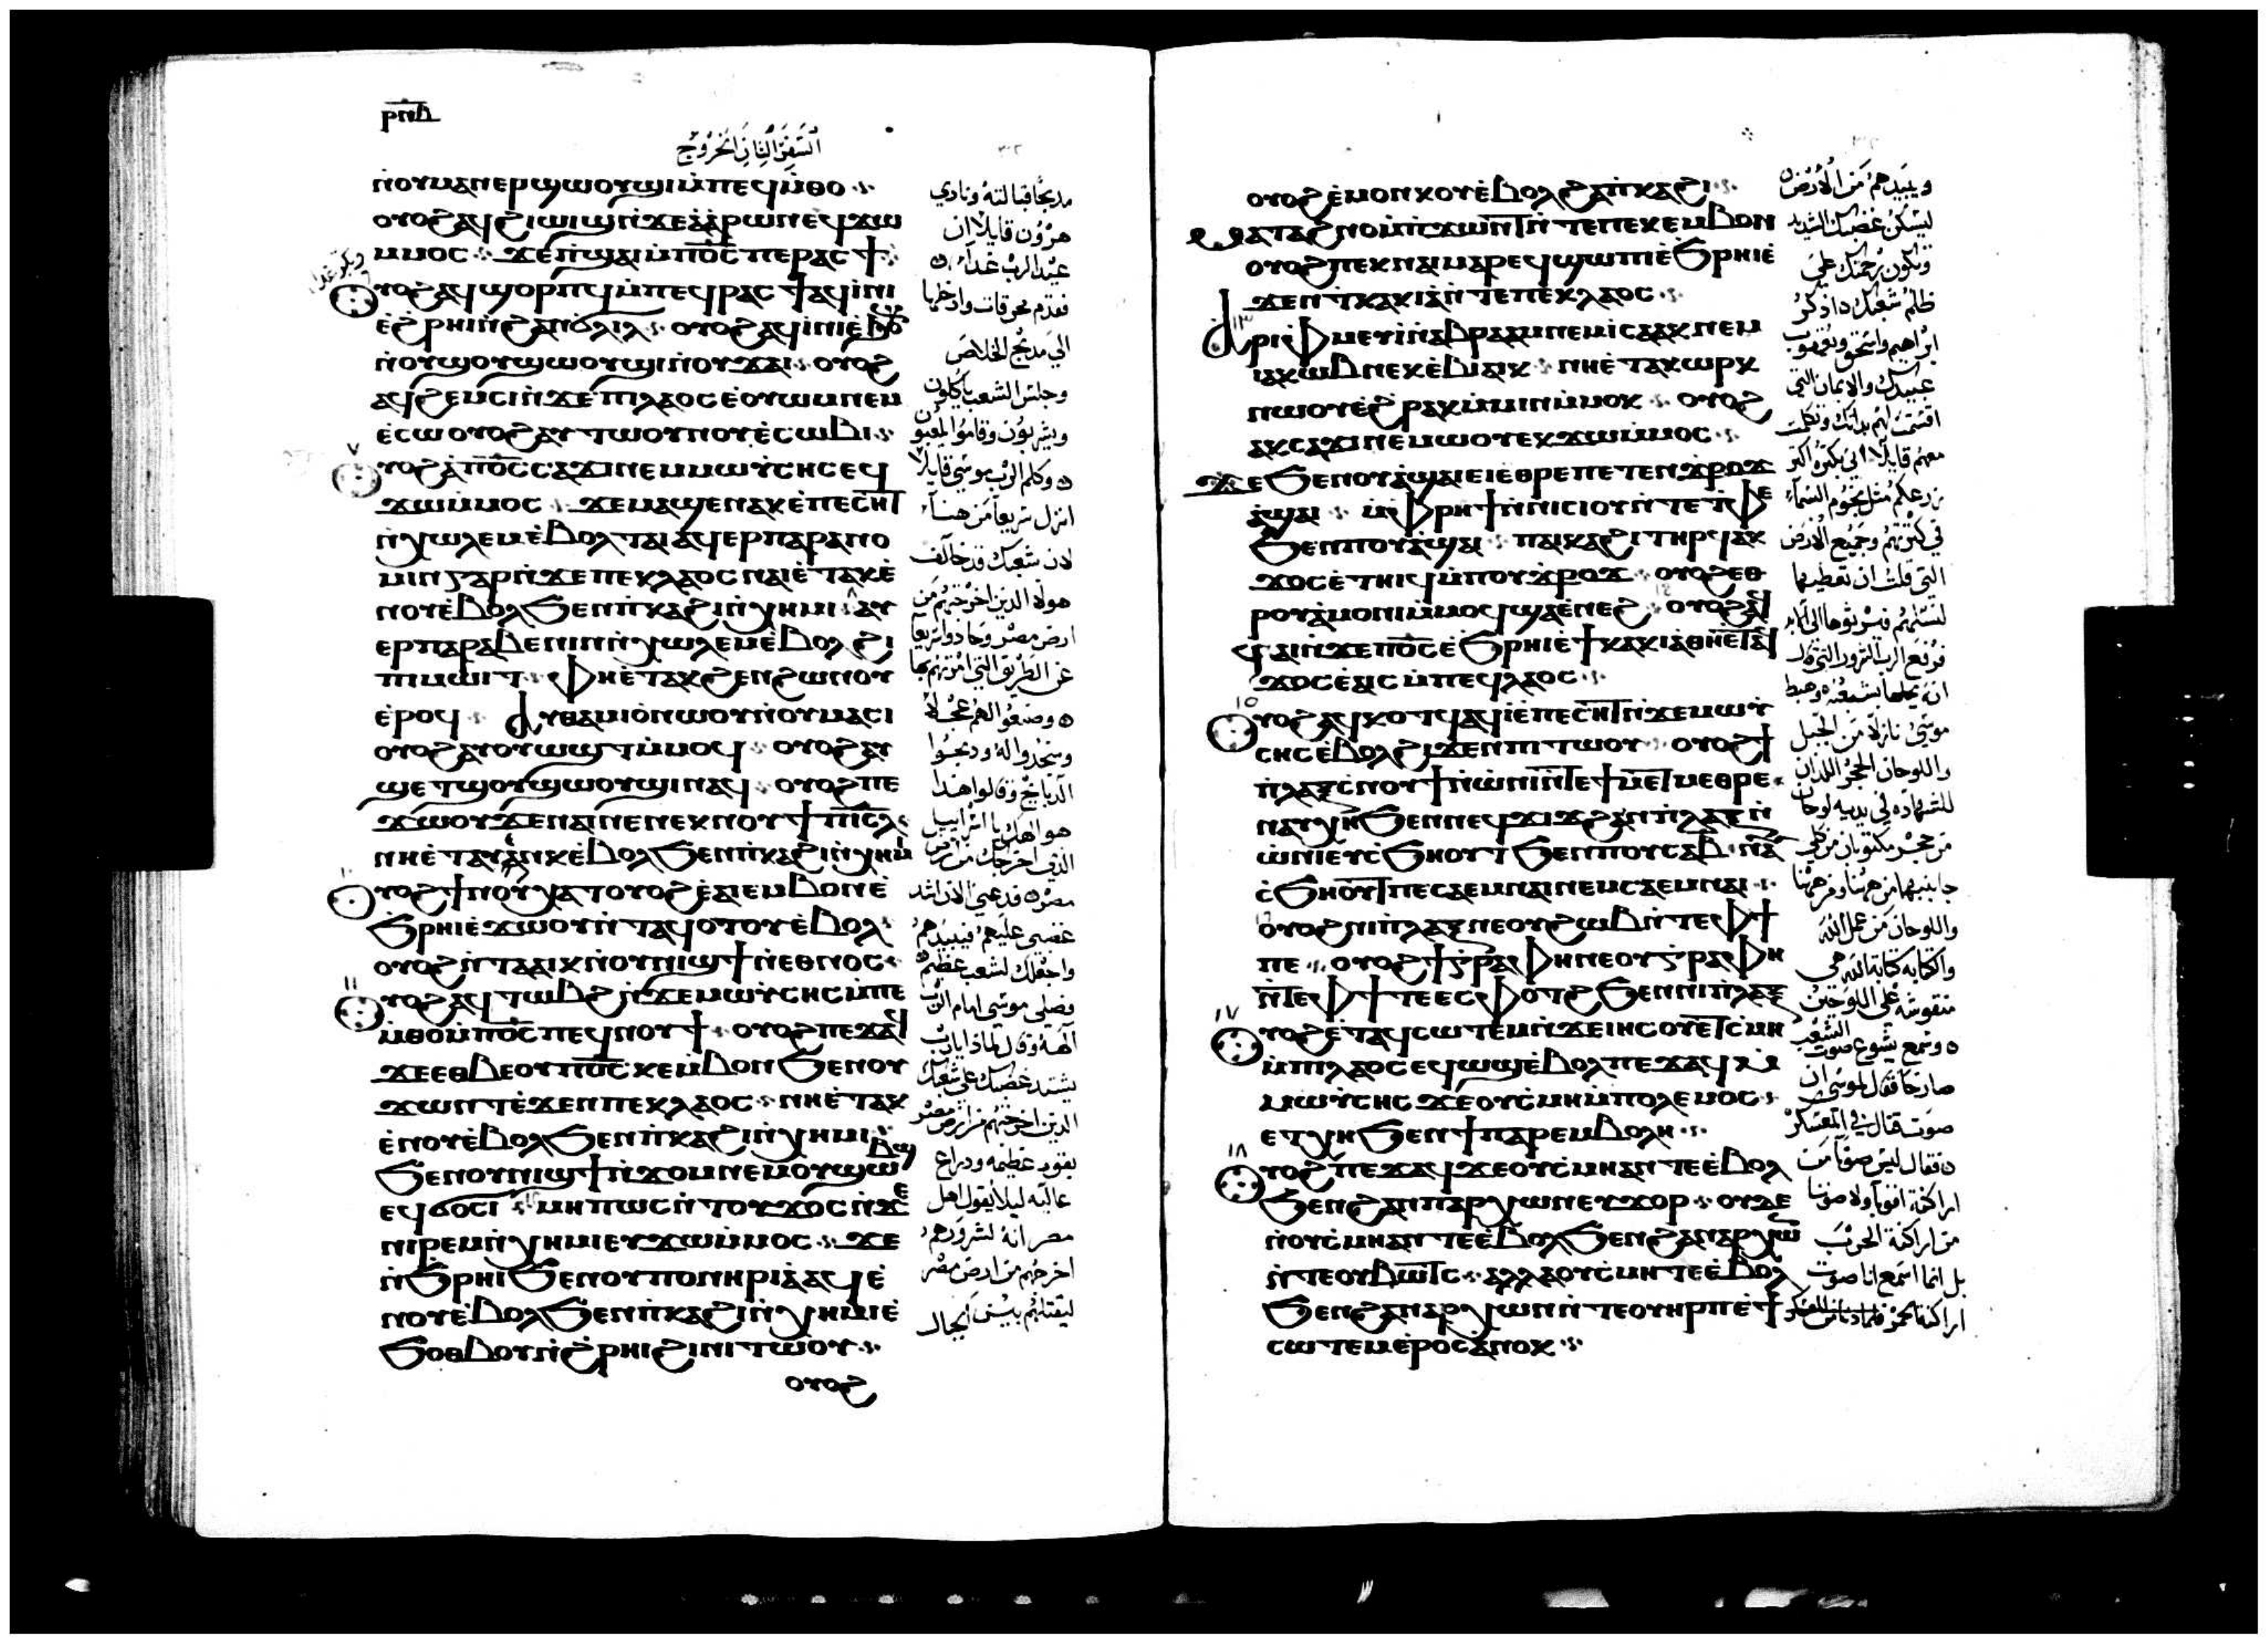 ⲣⲛⲃ
السفر الثاني الخروج
ⲛⲟⲩⲙⲁⲛⲉⲣϣⲱⲟⲩϣⲓ ⲙ̀ⲡⲉϥⲙ̀ⲑⲟ
ⲟⲩⲟϩ ⲁϥϩⲓⲱⲓϣ ⲛ̀ϫⲉ ⲁ̀ⲁ̀ⲣⲱⲛ ⲉϥϫⲱ
ⲙⲙⲟⲥ ϫⲉ ⲡ̀ϣⲁⲓ ⲙ̀ⲡⲟ̅ⲥ̅ ⲡⲉ ⲣⲁⲥϯ
ⲟⲩⲟϩ ⲁϥϣⲟⲣⲡϥ ⲙ̀ⲡⲉϥⲣⲁⲥϯ ⲁϥⲓ̀ⲛⲓ
ⲉ̀ϩⲣⲏⲓ ⲛ̀ϩⲁⲛϭⲗⲓⲗ ⲟⲩⲟϩ ⲁϥⲓ̀ⲛⲓ ⲉ̀ϧⲟⲩⲛ
ⲛ̀ⲟⲩϣⲟⲩϣⲱⲟⲩϣⲓ ⲛ̀ⲟⲩϫⲁⲓ ⲟⲩⲟϩ
ⲁϥϩⲉⲙⲥⲓ ⲛ̀ϫⲉ ⲡⲓⲗⲁⲟⲥ ⲉ̀ⲟⲩⲱⲙ ⲛⲉⲙ
ⲉ̀ⲥⲱ ⲟⲩⲟϩ ⲁⲩⲧⲱⲟⲩⲛⲟⲩ ⲉ̀ⲥⲱⲃⲓ
ⲟⲩⲟϩ ⲁ̀ⲡⲟ̅ⲥ̅ ⲥⲁϫⲓ ⲛⲉⲙ ⲙⲱⲩ̀ⲥⲏⲥ ⲉϥ
ϫⲱ ⲙ̀ⲙⲟⲥ ϫⲉ ⲙⲁϣⲉⲛⲁⲕ ⲉ̀ⲡⲉⲥⲏⲧ
ⲛ̀ⲭⲱⲗⲉⲙ ⲉ̀ⲃⲟⲗ ⲧⲁⲓ ⲁϥⲉⲣⲡⲁⲣⲁⲛⲟ
ⲙⲓⲛ ⲅⲁⲣ ⲛ̀ϫⲉ ⲡⲉⲕⲗⲁⲟⲥ ⲛⲁⲓ ⲉ̀ⲧⲁⲕⲉ̀
ⲛⲟⲩ ⲉ̀ⲃⲟⲗ ϧⲉⲛ ⲡ̀ⲕⲁϩⲓ ⲛ̀ⲭⲏⲙⲓ ⲁⲩ
ⲉⲣⲡⲁⲣⲁⲃⲉⲛⲓⲛ ⲛ̀ⲭⲱⲗⲉⲙ ⲉ̀ⲃⲟⲗ ϩⲓ
ⲡⲓⲙⲱⲓⲧ ⲫⲏ ⲉ̀ⲧⲁⲕϩⲉⲛϩⲱⲛⲟⲩ
ⲉ̀ⲣⲟϥ ⲁⲩⲑⲁⲙⲓⲟ̀ ⲛⲱⲟⲩ ⲛ̀ⲟⲩⲙⲁⲥⲓ
ⲟⲩⲟϩ ⲁⲩⲟⲩⲱϣⲧ ⲙ̀ⲙⲟϥ ⲟⲩⲟϩ ⲁⲩ
ϣⲉⲧϣⲟⲩϣⲱⲟⲩϣⲓ ⲛⲁϥ ⲟⲩⲟϩ ⲡⲉ
ϫⲱⲟⲩ ϫⲉ ⲛⲁⲓ ⲛⲉ ⲛⲉⲕⲛⲟⲩϯ ⲡⲓ̅ⲥ̅ⲗ̅
ⲛⲏ ⲉ̀ⲧⲁⲩⲉⲛⲕ ⲉ̀ⲃⲟⲗ ϧⲉⲛ ⲡ̀ⲕⲁϩⲓ ⲛ̀ⲭⲏⲙⲓ
ⲟⲩⲟϩ ϯⲛⲟⲩ ⲭⲁⲧ ⲟⲩⲟϩ ⲉ̀ⲁⲓⲉⲙⲃⲟⲛ ⲉ̀
ϧⲣⲏⲓ ⲉ̀ϫⲱⲟⲩ ⲛ̀ⲧⲁϥⲟⲧⲟⲩ ⲉ̀ⲃⲟⲗ
ⲟⲩⲟϩ ⲛ̀ⲧⲁⲁⲓⲕ ⲛ̀ⲟⲩⲛⲓϣϯ ⲛ̀ⲉⲑⲛⲟⲥ
ⲟⲩⲟϩ ⲁϥⲧⲱⲃϩ ⲛ̀ϫⲉ ⲙⲱⲩ̀ⲥⲏⲥ ⲙ̀ⲡⲉ
ⲙ̀ⲑⲟ ⲙ̀ⲡⲟ̅ⲥ̅ ⲡⲉϥⲛⲟⲩϯ ⲟⲩⲟϩ ⲡⲉϫⲁϥ
ϫⲉ ⲉⲑⲃⲉⲟⲩ ⲡⲟ̅ⲥ̅ ⲕⲉⲙⲃⲟⲛ ϧⲉⲛ ⲟⲩ
ϫⲱⲛⲧ ⲉ̀ϫⲉⲛ ⲡⲉⲕⲗⲁⲟⲥ ⲛⲏ ⲉ̀ⲧⲁⲕ
ⲉ̀ⲛⲟⲩ ⲉ̀ⲃⲟⲗ ϧⲉⲛ ⲡ̀ⲕⲁϩⲓ ⲛ̀ⲭⲏⲙⲓ
ϧⲉⲛ ⲟⲩⲛⲓϣϯ ⲛ̀ϫⲟⲙ ⲛⲉⲙ ⲟⲩϣⲱⲃϣ
ⲉϥϭⲟⲥⲓ ⲙⲏⲡⲱⲥ ⲛ̀ⲧⲟⲩϫⲟⲥ ⲛ̀ϫⲉ
ⲛⲓⲣⲉⲙⲛ̀ⲭⲏⲙⲓ ⲉⲩϫⲱ ⲙ̀ⲙⲟⲥ ϫⲉ
ⲛ̀ϧⲣⲏⲓ ϧⲉⲛ ⲟⲩⲡⲟⲛⲏⲣⲓⲁ̀ ⲁϥⲉ̀
ⲛⲟⲩ ⲉ̀ⲃⲟⲗ ϧⲉⲛ ⲡ̀ⲕⲁϩⲓ ⲛ̀ⲭⲏⲙⲓ ⲉ̀
ϧⲟⲑⲃⲟⲩ ⲛ̀ϩⲣⲏⲓ ϩⲓ ⲛⲓⲧⲱⲟⲩ
ⲟⲩⲟϩ
مدبحًا قبالته ونادي
هرون قايلًا ان
عيد الرب غدًا
وبكر غدا
فقدم محرقات وادخلها
الي مدبح الخلاص
وجلس الشعب ياكلون
ويشربون وقاموا ليلعبون
٧ وكلم الرب موسي قايلًا
انزل سريعًا من هنا
لان شعبك قد خالف
هولا الدين اخرجتهم من
ارض مصر وحادوا سريعًا
عن الطريق التي امرتهم بها
وصنعوا لهم عجلًا
وسجدوا له ودبحوا
الدبايح وقالوا هدا
هو الهك يا اسراييل
الدي اخرجك من ارض
١٠ مصر قد عني الان اشتد
غضبي عليهم فيبيدهم
واجعلك لشعب عظيم
١١ فصلي موسي امام الرب
الهه وقال لمادا يا رب
يشتد غضبك علي شعبك
الدين اخرجتهم من ارض مصر
بقوه عظيمه ودراع
عاليه ليلا يقول اهل
مصر انه لشرورهم
اخرجهم من ارض مصر
ليقتلهم بين الجبال
ⲟⲩⲟϩ ⲉ̀ⲙⲟⲛⲕⲟⲩ ⲉ̀ⲃⲟⲗ ϩⲁ ⲡ̀ⲕⲁϩⲓ
ⲙⲁⲧⲁϩⲛⲟ ⲙ̀ⲡ̀ϫⲱⲛⲧ ⲛ̀ⲧⲉ ⲡⲉⲕⲉⲙⲃⲟⲛ
ⲟⲩⲟϩ ⲡⲉⲕⲛⲁⲓ ⲙⲁⲣⲉϥϣⲱⲡⲓ ⲉ̀ϧⲣⲏⲓ ⲉ̀
ϫⲉⲛ ϯⲕⲁⲕⲓⲁ̀ ⲛ̀ⲧⲉ ⲡⲉⲕⲗⲁⲟⲥ
ⲁⲣⲓⲫⲙⲉⲩⲓ̀ ⲛ̀ⲁⲃⲣⲁⲁⲙ ⲛⲉⲙ ⲓⲥⲁⲁⲕ ⲛⲉⲙ
ⲓⲁⲕⲱⲃ ⲛⲉⲕⲉ̀ⲃⲓⲁⲓⲕ ⲛⲏ ⲉ̀ⲧⲁⲕⲱⲣⲕ
ⲛⲱⲟⲩ ⲉ̀ϩⲣⲁⲕ ⲙ̀ⲙⲓⲛ ⲙ̀ⲙⲟⲕ ⲟⲩⲟϩ
ⲁⲕⲥⲁϫⲓ ⲛⲉⲙⲱⲟⲩ ⲉⲕϫⲱ ⲙ̀ⲙⲟⲥ
ϫⲉ ϧⲉⲛ ⲟⲩⲁ̀ϣⲁⲓ ⲉⲓⲉ̀ⲑⲣⲉ ⲡⲉⲧⲉⲛϫⲣⲟϫ
ⲁ̀ϣⲁⲓ ⲙ̀ⲫⲣⲏϯ ⲛ̀ⲛⲓⲥⲓⲟⲩ ⲛ̀ⲧⲉ ⲧ̀ⲫⲉ
ϧⲉⲛ ⲡⲟⲩⲁ̀ϣⲁⲓ ⲡⲁⲓⲕⲁϩⲓ ⲧⲏⲣϥ ⲁⲕ
ϫⲟⲥ ⲉ̀ⲧⲏⲓϥ ⲙ̀ⲡⲟⲩϫⲣⲟϫ ⲟⲩⲟϩ ⲉⲑ
ⲣⲟⲩⲁ̀ⲙⲟⲛⲓ ⲙ̀ⲙⲟϥ ϣⲁ ⲉ̀ⲛⲉϩ ⲟⲩⲟϩ ⲁϥ
ϥⲁⲓ ⲛ̀ϫⲉ ⲡⲟ̅ⲥ̅ ⲉ̀ϧⲣⲏⲓ ⲉ̀ϯⲕⲁⲕⲓⲁ̀ ⲑⲏ ⲉ̀ⲧⲁϥ
ϫⲟⲥ ⲉ̀ⲁⲓⲥ ⲙ̀ⲡⲉϥⲗⲁⲟⲥ
ⲟⲩⲟϩ ⲁϥⲕⲟⲧϥ ⲁϥⲓ̀ ⲉ̀ⲡⲉⲥⲏⲧ ⲛ̀ϫⲉ ⲙⲱⲩ̀
ⲥⲏⲥ ⲉ̀ⲃⲟⲗ ϩⲓϫⲉⲛ ⲡⲓⲧⲱⲟⲩ ⲟⲩⲟϩ ϯ
ⲡ̀ⲗⲁⲝ ⲥ̀ⲛⲟⲩϯ ⲛ̀ⲱ̀ⲛⲓ ⲛ̀ⲧⲉ ϯⲙⲉⲧⲙⲉⲑⲣⲉ
ⲛⲁⲩⲭⲏ ϧⲉⲛ ⲛⲉϥϫⲓϫ ϩⲁⲛⲡ̀ⲗⲁⲝ ⲛ̀
ⲱ̀ⲛⲓ ⲉⲩⲥ̀ϧⲏⲟⲩⲧ ϧⲉⲛ ⲡⲟⲩⲥⲁ ⲃ̅ ⲛⲁⲩ
ⲥ̀ϧⲏⲟⲩⲧ ⲡⲉ ⲥⲁⲉⲙⲛⲁⲓ ⲛⲉⲙ ⲥⲁⲉⲙⲛⲁⲓ
ⲟⲩⲟϩ ⲛⲓⲡ̀ⲗⲁⲝ ⲛⲉ ⲟⲩϩⲱⲃ ⲛ̀ⲧⲉ ⲫϯ
ⲡⲉ ⲟⲩⲟϩ ϯⲅⲣⲁⲫⲏ ⲛⲉ ⲟⲩⲅⲣⲁⲫⲏ
ⲛ̀ⲧⲉ ⲫϯ ⲧⲉ ⲉⲥⲫⲟⲧϩ ϧⲉⲛ ⲛⲓⲡ̀ⲗⲁⲝ
ⲟⲩⲟϩ ⲉ̀ⲧⲁϥⲥⲱⲧⲉⲙ ⲛ̀ϫⲉ ⲓⲏⲥⲟⲩ ⲉ̀ⲧⲥ̀ⲙⲏ
ⲙ̀ⲡⲓⲗⲁⲟⲥ ⲉϥⲱϣ ⲉ̀ⲃⲟⲗ ⲡⲉϫⲁϥ ⲙ̀
ⲙⲱⲩ̀ⲥⲏⲥ ϫⲉ ⲟⲩⲥ̀ⲙⲏ ⲙ̀ⲡⲟⲗⲉⲙⲟⲥ
ⲉⲧⲭⲏ ϧⲉⲛ ϯⲡⲁⲣⲉⲙⲃⲟⲗⲏ
ⲟⲩⲟϩ ⲡⲉϫⲁϥ ϫⲉ ⲟⲩⲥ̀ⲙⲏ ⲁⲛ ⲧⲉ ⲉ̀ⲃⲟⲗ
ϧⲉⲛ ϩⲁⲛⲁⲣⲭⲱⲛ ⲉⲩϫⲟⲣ ⲟⲩⲇⲉ
ⲛ̀ⲟⲩⲥ̀ⲙⲏ ⲁⲛ ⲧⲉ ⲉ̀ⲃⲟⲗ ϧⲉⲛ ϩⲁⲛⲁⲣⲭⲱⲛ
ⲛ̀ⲧⲉ ⲟⲩⲃⲱⲧⲥ ⲁⲗⲗⲁ ⲟⲩⲥ̀ⲙⲏ ⲧⲉ ⲉ̀ⲃⲟⲗ
ϧⲉⲛ ϩⲁⲛⲁⲣⲭⲱⲛ ⲛ̀ⲧⲉ ⲟⲩⲏⲣⲡ ⲉ̀ϯ
ⲥⲱⲧⲉⲙ ⲉ̀ⲣⲟⲥ ⲁ̀ⲛⲟⲕ
ويبيدهم من الارض
ليسكن غضبك الشديد
وتكون رحمتك علي
ظلم شعبك ١٣ ادكر
ابراهيم واسحق ويعقوب
عبيدك والايمان التي
اقسمت لهم بداتك وتكلمت
معهم قايلا اني بكثره اكثر
زرعكم مثل نجوم السماء
في كثرتهم وجميع الارض
التي قلت ان تعطيها
لنسلهم فيرثوها الي الابد
فرفع الرب الشرور التي قال
١٥ انه يحلها بشعبه وهبط
موسي نازلًا من الجبل
واللوحان الحجر اللدان
للشهاده في يديه لوحان
من حجر مكتوبان من كلي
جانبيهما من هاهنا ومن هاهنا
واللوحان من عمل الله
والكتابه كتابة الله هي
منقوشه علي اللوحين
١٧ وسمع يشوع صوت الشعب
صارخًا فقال لموسي ان
صوت قتال في المعسكر
١٨ فقال ليس صوتًا من
اراكنة اقويا ولا صوتا
من اراكنة الحرب
بل انما اسمع انا صوت
اراكنة خمر